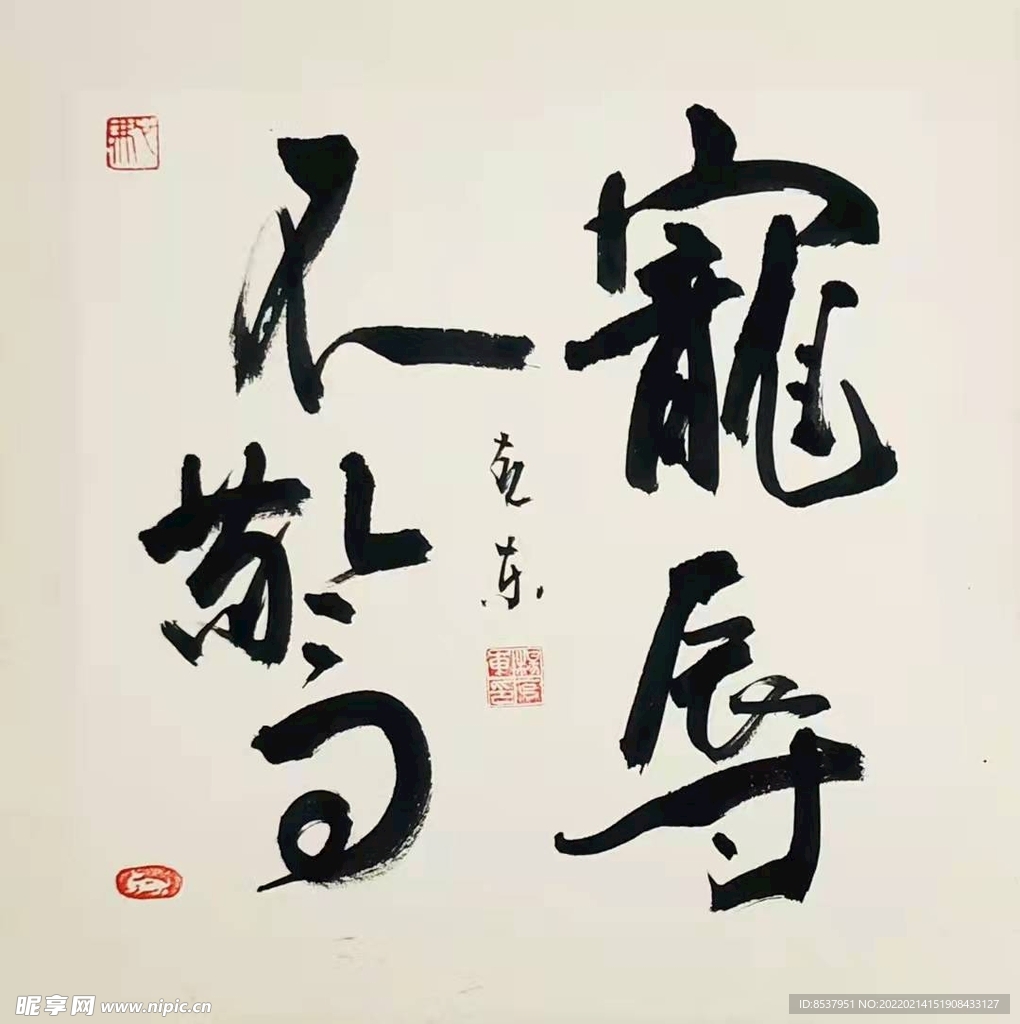 寵辱
不驚
昵享网 www.nipic.cn
ID:8537951 NO:20220214151908433127